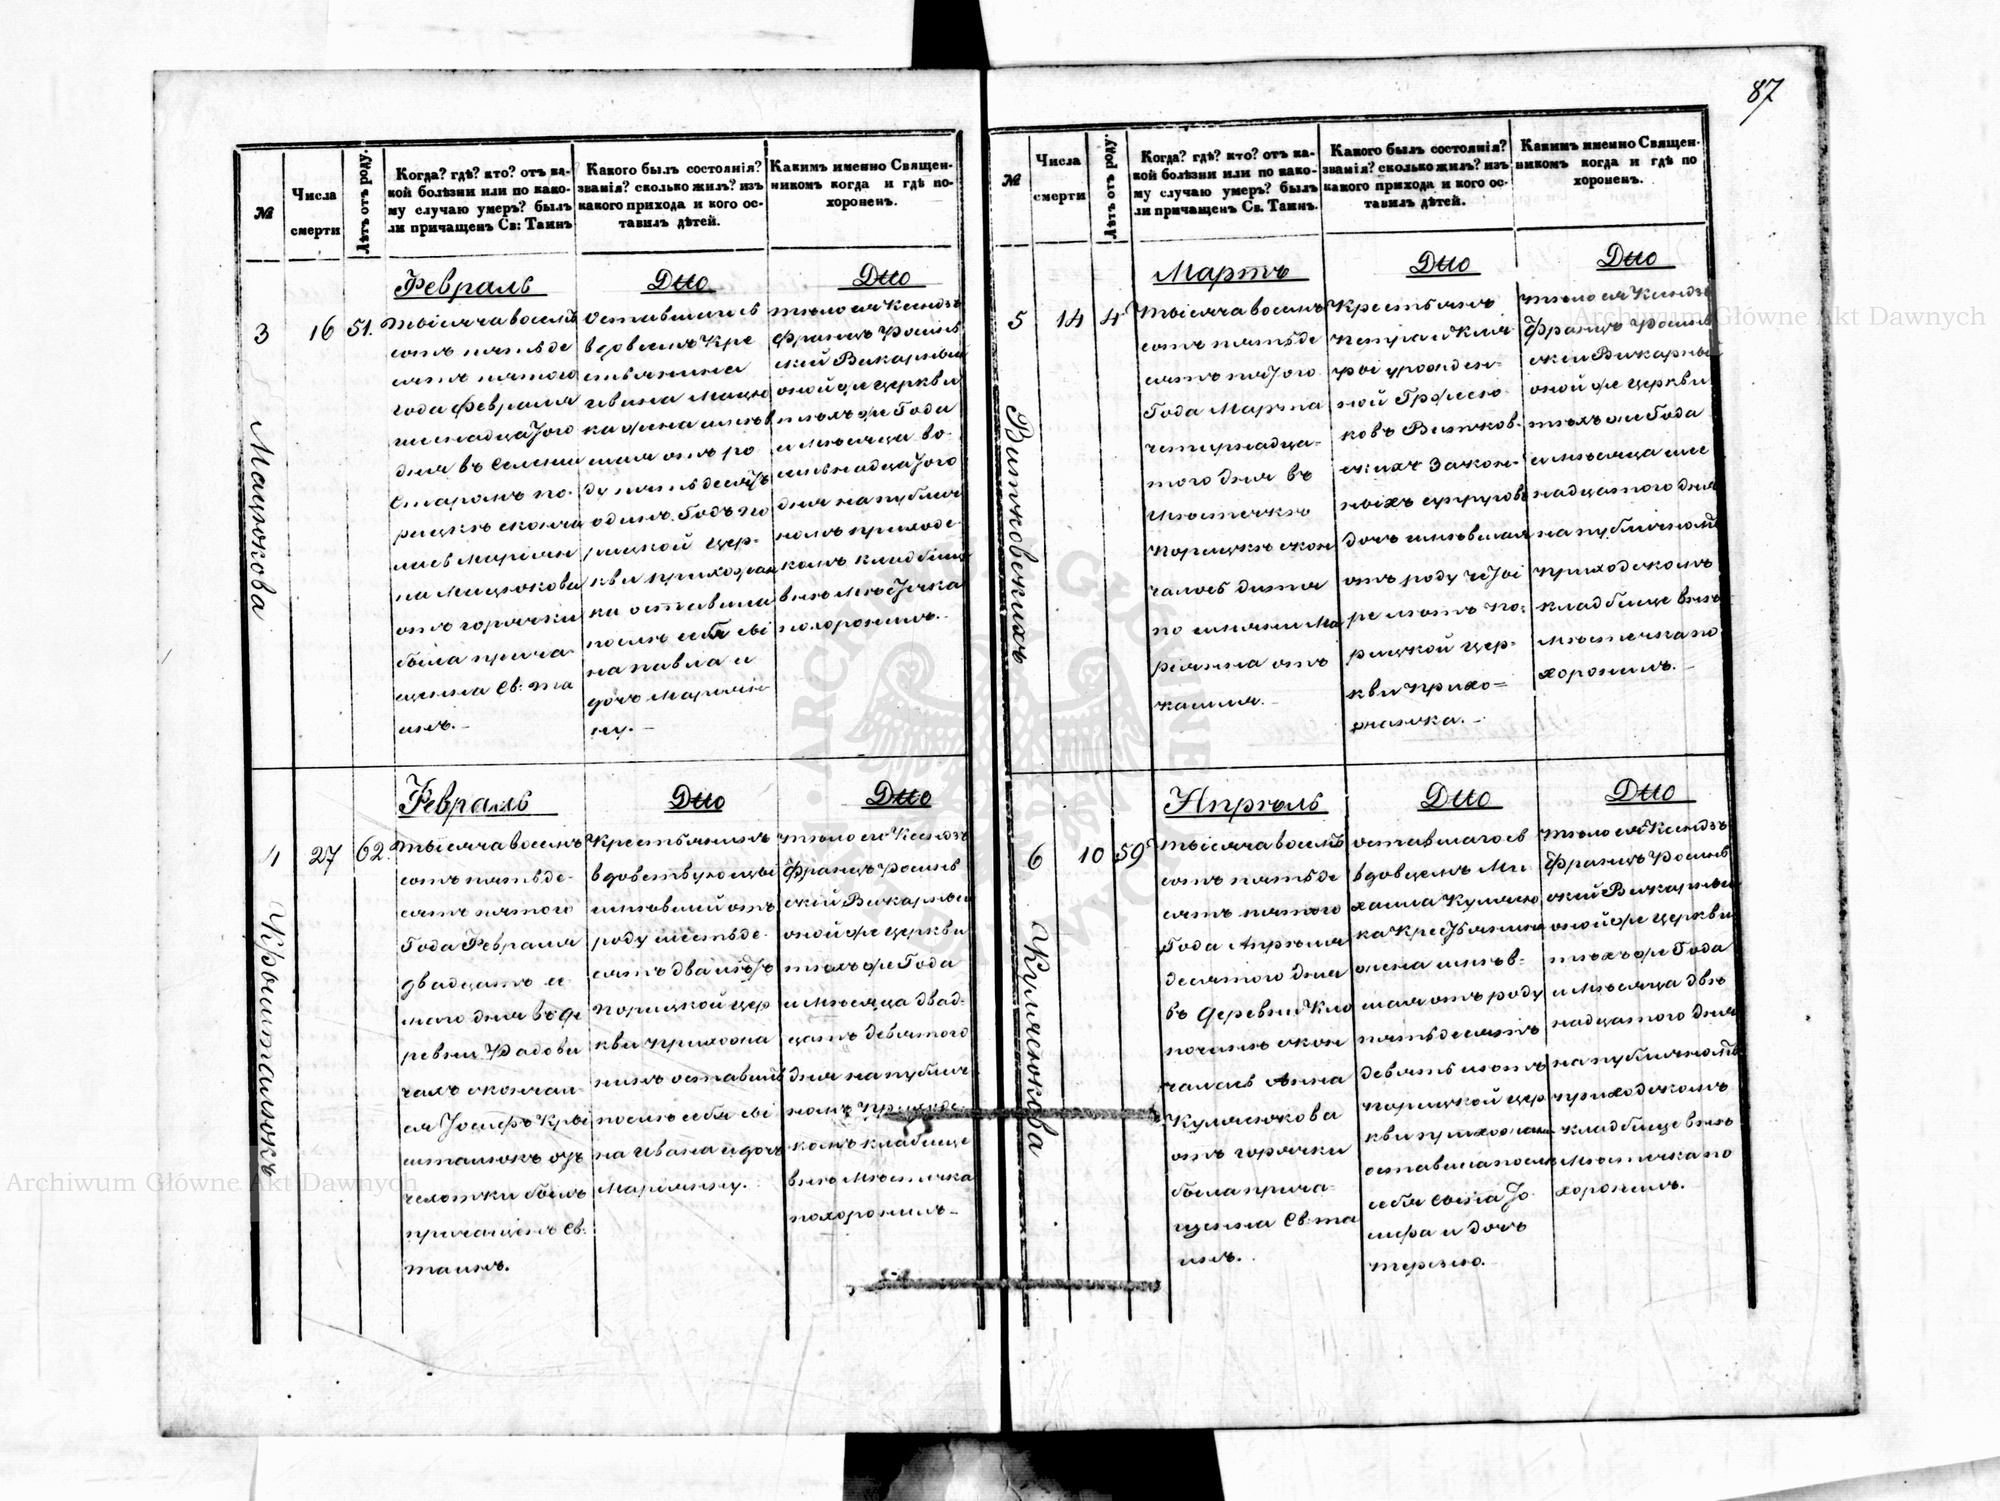 87
№
Числа смерти
Лѣтъ отъ роду.
Когда? гдѣ? кто? отъ ка-
кой болѣзни или по како-
му случаю умеръ? былъ
ли причащенъ Св: Таинъ
Какого былъ состоянія?
званія? сколько жилъ? изъ
какого прихода и кого ос-
тавилъ дѣтей.
Какимъ именно Священ-
никомъ когда и гдѣ по-
хороненъ.
3
16
51.
Мацюкова
Февраль
Тысяча восемь
сотъ пятьде
сятъ пятого
года Февраля
шеснадцатого
дня въ Селении
Старомъ По-
рицкѣ сконча
лась Маріан
на Мацюкова
отъ горячки
была прича
щенна Св: Та
инъ.-
Дтто
Оставшагось
вдовцемъ кре
стьянина
Ивана Мацю
ка жена имѣв
шая отъ ро
ду пятьдесятъ
одинъ годъ По
рицкой цер-
кви прихожан
ка оставила
послѣ себя сы
на Павла и
дочь Мариян
ну.-
Дтто
тѣло ея Ксіондзъ
Францъ Росинъ
скій Викарный
оной же церкви
тѣхъ же Года
и Мѣсяца во-
семьнадцатого
дня на публич
номъ приходс-
комъ кладбищѣ
внѣ Мѣстечка
похоронилъ.
4
27
62.
Крыштальюкъ
Февраль
Тысяча восемь
сотъ пятьде-
сятъ пятого
Года Февраля
двадцать се
мого дня въ де
ревни Радови
чахъ скончал-
ся Іосифъ Кры
штальюкъ отъ
чехотки былъ
причащенъ Св:
таинъ.
Дтто
Крестьянинъ
вдовствующій
имѣвшій отъ
роду шестьде-
сятъ два лѣтъ
Порицкой цер
кви прихожа
нинъ оставилъ
послѣ себя сы
на Ивана и дочь
Марианну.
Дтто
тѣло его Ксіондзъ
Францъ Росинъ
скій Викарный
оной же церкви
тѣхъ же Года
и Мѣсяца двад-
цать девятого
дня на публич
номъ приходс
комъ кладбище
внѣ Мѣстечка
похоронилъ.-
№
Числа смерти
Лѣтъ отъ роду.
Когда? гдѣ? кто? отъ ка-
кой болѣзни или по како-
му случаю умеръ? былъ
ли причащенъ Св. Таинъ.
Какого былъ состоянія?
званія? сколько жилъ? изъ
какого прихода и кого ос-
тавилъ дѣтей.
Какимъ именно Священ-
никомъ когда и гдѣ по
хороненъ.
5
14
4
Витковскихъ
Мартъ
Тысяча восемь
сотъ пятьде
сятъ пятого
Года Марта
четырнадца-
того дня въ
Мѣстечкѣ
Порицкѣ скон
чалось дитя
по имени Ма
ріянна отъ
кашля.-
Дтто
Крестьянъ
Петра и Кля
ры урожден-
ной
Витков-
скихъ закон-
ныхъ супруговъ
дочь имѣвшая
отъ роду четы
ре лѣтъ По-
рицкой цер-
кви прихо=
жанка.-
Дтто
тѣло ея Ксіондзъ
Францъ Росинъ
скій Викарный
оной же церкви
тѣхъ же Года
и Мѣсяца шес
надцатого дня
на публичномъ
приходскомъ
кладбище внѣ
Мѣстечка по
хоронилъ.-
6
10
59
Кулясюкова
Апрѣль
Тысяча восемь
сотъ пятьде
сятъ пятого
Года Апрѣля
десятого дня
въ деревни Кло
починѣ скон
чалась Анна
Кулясюкова
отъ горячки
была прича-
щенна Св: та
инъ.
Дтто
Оставшагось
вдовцемъ Ми
хаила Кулясю
ка Крестьянина
жена имѣв-
шая отъ роду
пятьдесятъ
девять лѣтъ
Порицкой цер
кви прихожанка
оставила послѣ
себя сына Іо
сифа и дочь
терезію.
Дтто
тѣло ея Ксіондзъ
Францъ Росинъ
скій Викарный
оной же церкви
тѣхъ же Года
и Мѣсяца двѣ
надцатого дня
на публичномъ
приходскомъ
кладбище внѣ
Мѣстечка по
хоронилъ.
Archiwum Główne Akt Dawnych
Archiwum Główne Akt Dawnych